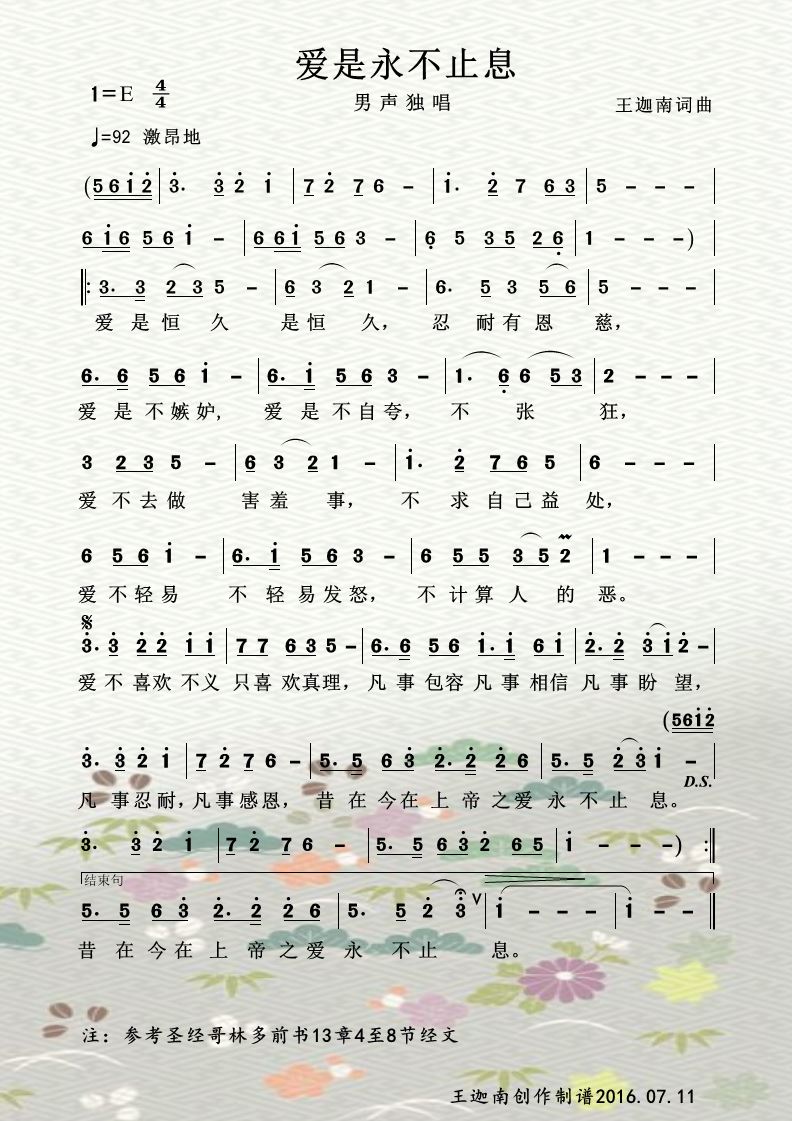 爱是永不止息
1=E 4/4
男声独唱
王迦南词曲
♩=92 激昂地
(5 6 1̇ 2̇ | 3̇. 3̇ 2̇ 1̇ | 7 2̇ 7 6 - | 1̇. 2̇ 7 6 3 | 5 - - - |
6 1̇ 6 5 6 1̇ - | 6 6 1̇ 5 6 3 - | 6̣ 5 3 5 2 6̣ | 1 - - -) |
‖: 3. 3 2 3 5 - | 6 3 2 1 - | 6. 5 3 5 6 | 5 - - - |
爱 是 恒 久 是 恒 久, 忍 耐 有 恩 慈,
6. 6 5 6 1̇ - | 6. 1̇ 5 6 3 - | 1. 6̣ 6 5 3 | 2 - - - |
爱 是 不 嫉 妒, 爱 是 不 自 夸, 不 张 狂,
3 2 3 5 - | 6 3 2 1 - | 1̇. 2̇ 7 6 5 | 6 - - - |
爱 不 去 做 害 羞 事, 不 求 自 己 益 处,
6 5 6 1̇ - | 6. 1̇ 5 6 3 - | 6 5 5 3 5 2̇ | 1 - - - |
爱 不 轻 易 不 轻 易 发 怒, 不 计 算 人 的 恶。
𝄋
3̇. 3̇ 2̇ 2̇ 1̇ 1̇ | 7 7 6 3 5 - | 6. 6 5 6 1̇. 1̇ 6 1̇ | 2̇. 2̇ 3̇ 1̇ 2̇ - |
爱 不 喜欢 不义 只喜 欢真理, 凡 事 包容 凡 事 相信 凡 事 盼 望,
(5 6 1̇ 2̇
3̇. 3̇ 2̇ 1̇ | 7 2̇ 7 6 - | 5. 5 6 3̇ 2̇. 2̇ 2̇ 6 | 5. 5 2̇ 3̇ 1̇ - |
D.S.
凡 事 忍 耐, 凡 事 感 恩, 昔 在 今 在 上 帝 之 爱 永 不 止 息。
3̇. 3̇ 2̇ 1̇ | 7 2̇ 7 6 - | 5. 5 6 3̇ 2̇ 6 5 | 1̇ - - -) :‖
结束句
5. 5 6 3̇ 2̇. 2̇ 2̇ 6 | 5. 5 2̇ 3̇ ∨ | 1̇ - - - | 1̇ - - ‖
昔 在 今 在 上 帝 之 爱 永 不 止 息。
注: 参考圣经哥林多前书13章4至8节经文
王迦南创作制谱2016.07.11